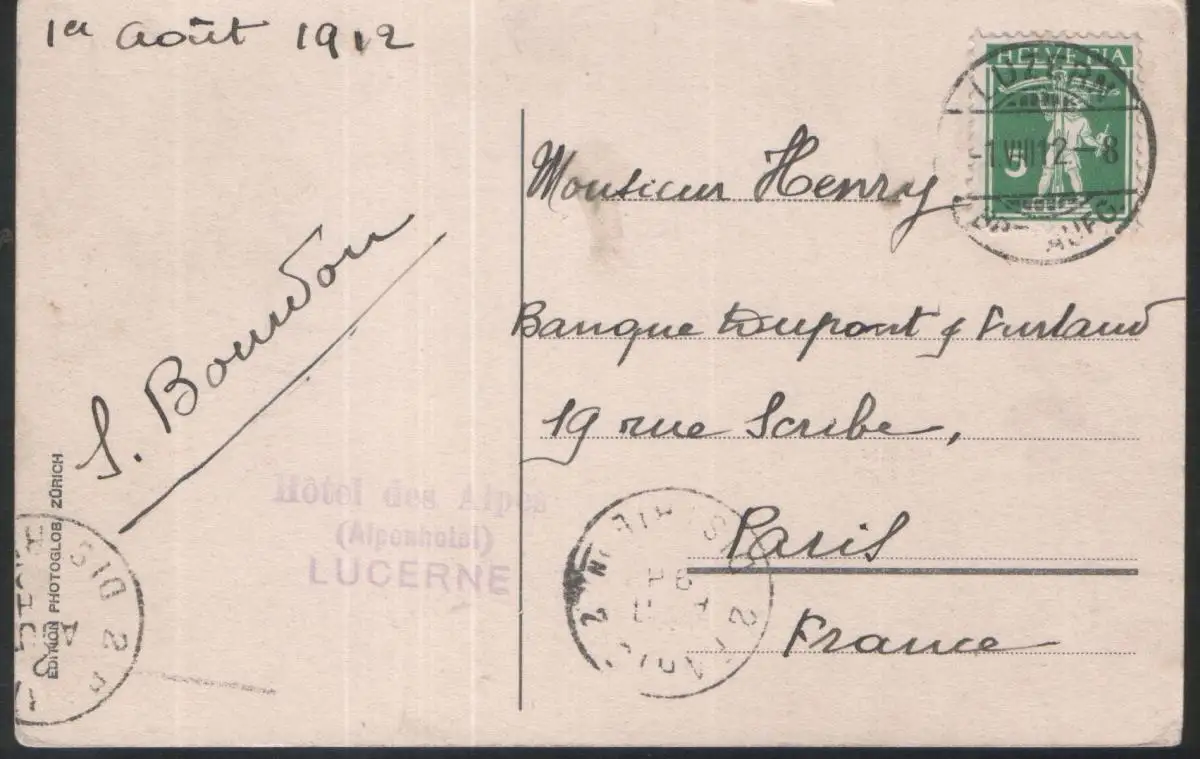 1er août 1912
HELVETIA
5
LUZERN
-1.VIII.12-8
BRF. AUFG.
Monsieur Henry
Banque Dupont & Furlaud
19 rue Scribe,
Paris
France
S. Bourdon
Hôtel des Alpes
(Alpenhotel)
LUCERNE
EDITION PHOTOGLOB, ZÜRICH